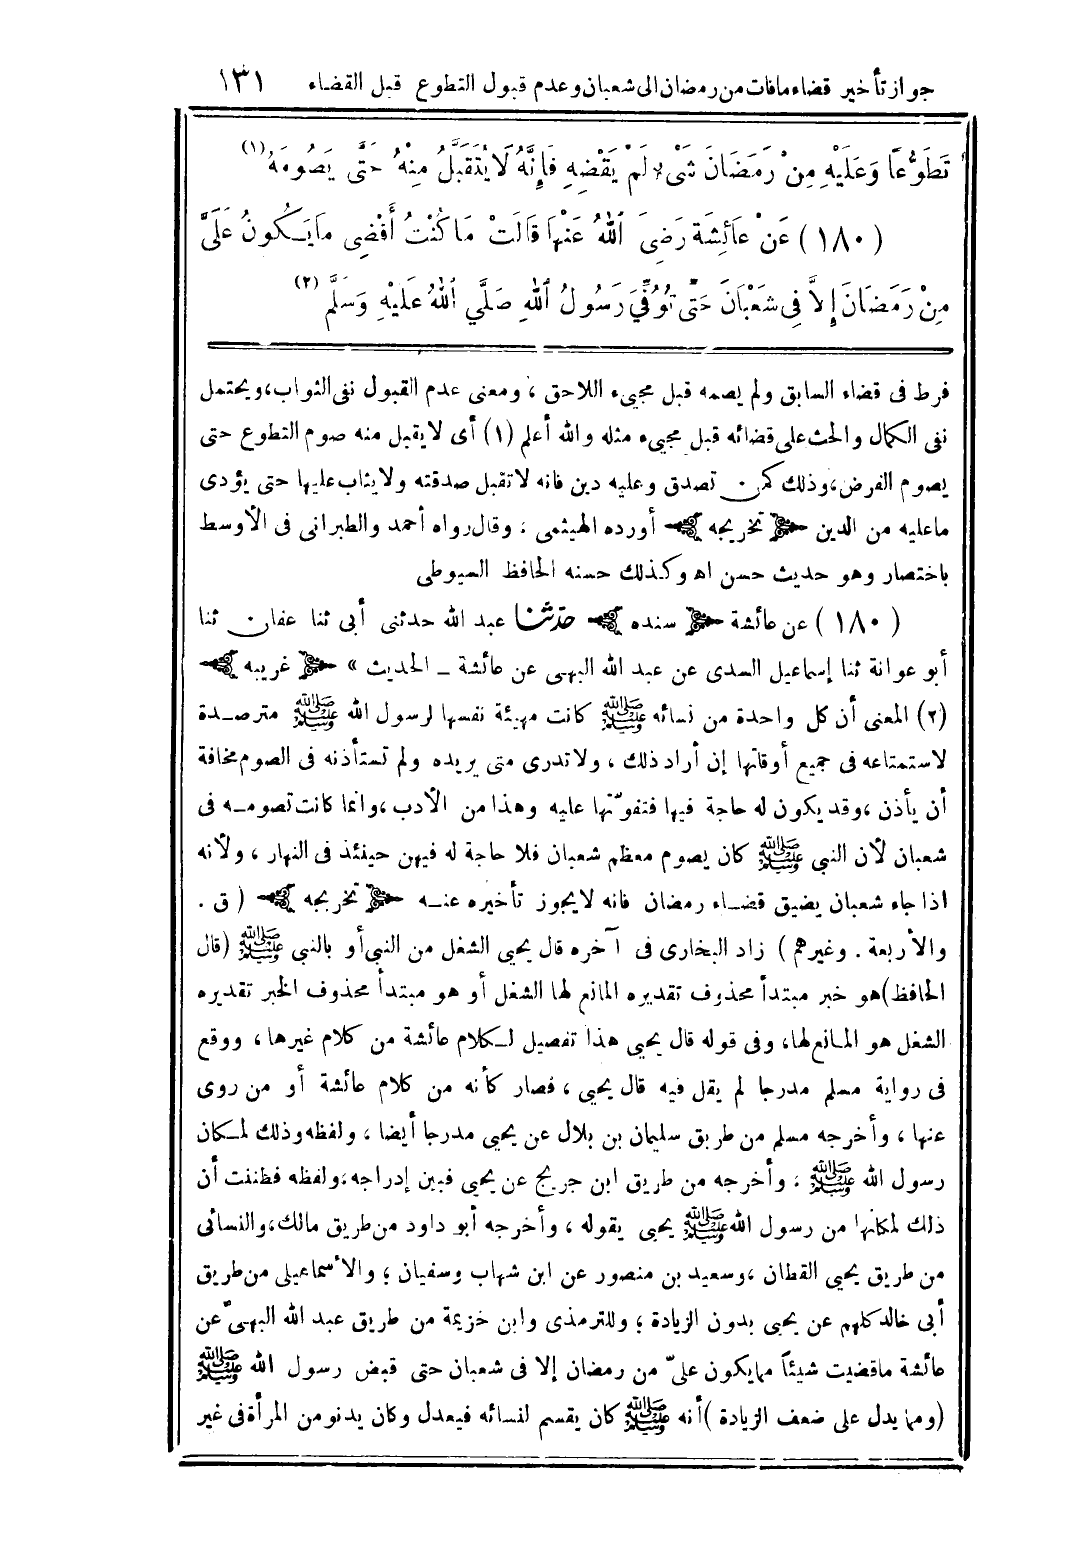 جواز تأخير قضاء مافات من رمضان الى شعبان وعدم قبول التطوع قبل القضاء ١٣١
تَطَوُّعًا وَعَلَيْهِ مِنْ رَمَضَانَ شَىْءٌ لَمْ يَقْضِهِ فَإِنَّهُ لَا يُتَقَبَّلُ مِنْهُ حَتَّى يَصُومَهُ (١)
(١٨٠) عَنْ عَائِشَةَ رَضِىَ اللهُ عَنْهَا قَالَتْ مَا كُنْتُ أَقْضِى مَا يَكُونُ عَلَىَّ
مِنْ رَمَضَانَ إِلاَّ فِى شَعْبَانَ حَتَّى تُوُفِّىَ رَسُولُ اللهِ صَلَّي اللهُ عَلَيْهِ وَسَلَّمَ (٢)
فرط فى قضاء السابق ولم يصمه قبل مجيء اللاحق ، ومعنى عدم القبول نفى الثواب، ويحتمل
نفى الكمال والحث على قضائه قبل مجىء مثله والله أعلم (١) أى لا يقبل منه صوم التطوع حتى
يصوم الفرض، وذلك كمن تصدق وعليه دين فانه لا تقبل صدقته ولا يثاب عليها حتى يؤدى
ماعليه من الدين ﴿تخريجه﴾ أورده الهيثمى ، وقال رواه أحمد والطبرانى فى الأوسط
باختصار وهو حديث حسن اه وكذلك حسنه الحافظ السيوطى
(١٨٠) عن عائشة ﴿سنده﴾ حدّثنا عبد الله حدثنى أبى ثنا عفان ثنا
أبو عوانة ثنا إسماعيل السدى عن عبد الله البهى عن عائشة ـ الحديث » ﴿غريبه﴾
(٢) المعنى أن كل واحدة من نسائه ﷺ كانت مهيئة نفسها لرسول الله ﷺ مترصدة
لاستمتاعه فى جميع أوقاتها إن أراد ذلك ، ولا تدرى متى يريده ولم تستأذنه فى الصوم مخافة
أن يأذن ، وقد يكون له حاجة فيها فتفوّتها عليه وهذا من الأدب ، وانما كانت تصومه فى
شعبان لأن النبي ﷺ كان يصوم معظم شعبان فلا حاجة له فيهن حينئذ فى النهار ، ولأنه
اذا جاء شعبان يضيق قضاء رمضان فانه لا يجوز تأخيره عنه ﴿تخريجه﴾ (ق .
والأربعة . وغيرهم) زاد البخارى فى آخره قال يحيي الشغل من النبى أو بالنبى ﷺ (قال
الحافظ) هو خبر مبتدأ محذوف تقديره المانع لها الشغل أو هو مبتدأ محذوف الخبر تقديره
الشغل هو المانع لها، وفى قوله قال يحيي هذا تفصيل لكلام عائشة من كلام غيرها ، ووقع
فى رواية مسلم مدرجا لم يقل فيه قال يحيي ، فصار كأنه من كلام عائشة أو من روى
عنها ، وأخرجه مسلم من طريق سليمان بن بلال عن يحيي مدرجا أيضا ، ولفظه وذلك لمكان
رسول الله ﷺ ، وأخرجه من طريق ابن جريج عن يحيي فبين إدراجه، ولفظه فظننت أن
ذلك لمكانها من رسول الله ﷺ يحيى يقوله ، وأخرجه أبو داود من طريق مالك، والنسائى
من طريق يحيي القطان ، وسعيد بن منصور عن ابن شهاب وسفيان ؛ والأسماعيلى من طريق
أبى خالد كلهم عن يحيى بدون الزيادة ؛ وللترمذى وابن خزيمة من طريق عبد الله البهىّ عن
عائشة ماقضيت شيئاً مما يكون علىّ من رمضان إلا فى شعبان حتى قبض رسول الله ﷺ
(ومما يدل على ضعف الزيادة) أنه ﷺ كان يقسم لنسائه فيعدل وكان يدنو من المرأة فى غير